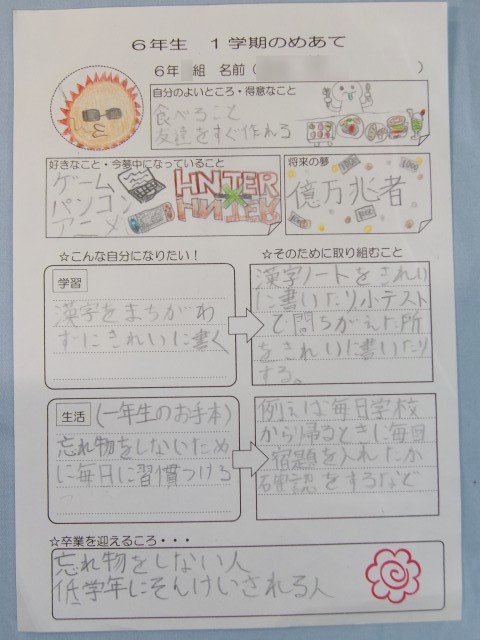 6年生 1学期のめあて
6年 組 名前( )
自分のよいところ・得意なこと
食べること
友達をすぐ作れる
好きなこと・今夢中になっていること
ゲーム
パソコン
アニメ
HUNTER
HUNTER
将来の夢
億万兆者
☆こんな自分になりたい!
☆そのために取り組むこと
学習
漢字をまちがわ
ずにきれいに書く
漢字ノートをきれい
に書いたり小テスト
で間ちがえた所
をきれいに書いたり
する。
生活 (一年生のお手本)
忘れ物をしないため
に毎日に習慣つける
例えば毎日学校
から帰るときに毎回
宿題を入れたか
確認をするなど
☆卒業を迎えるころ・・・
忘れ物をしない人
低学年にそんけいされる人